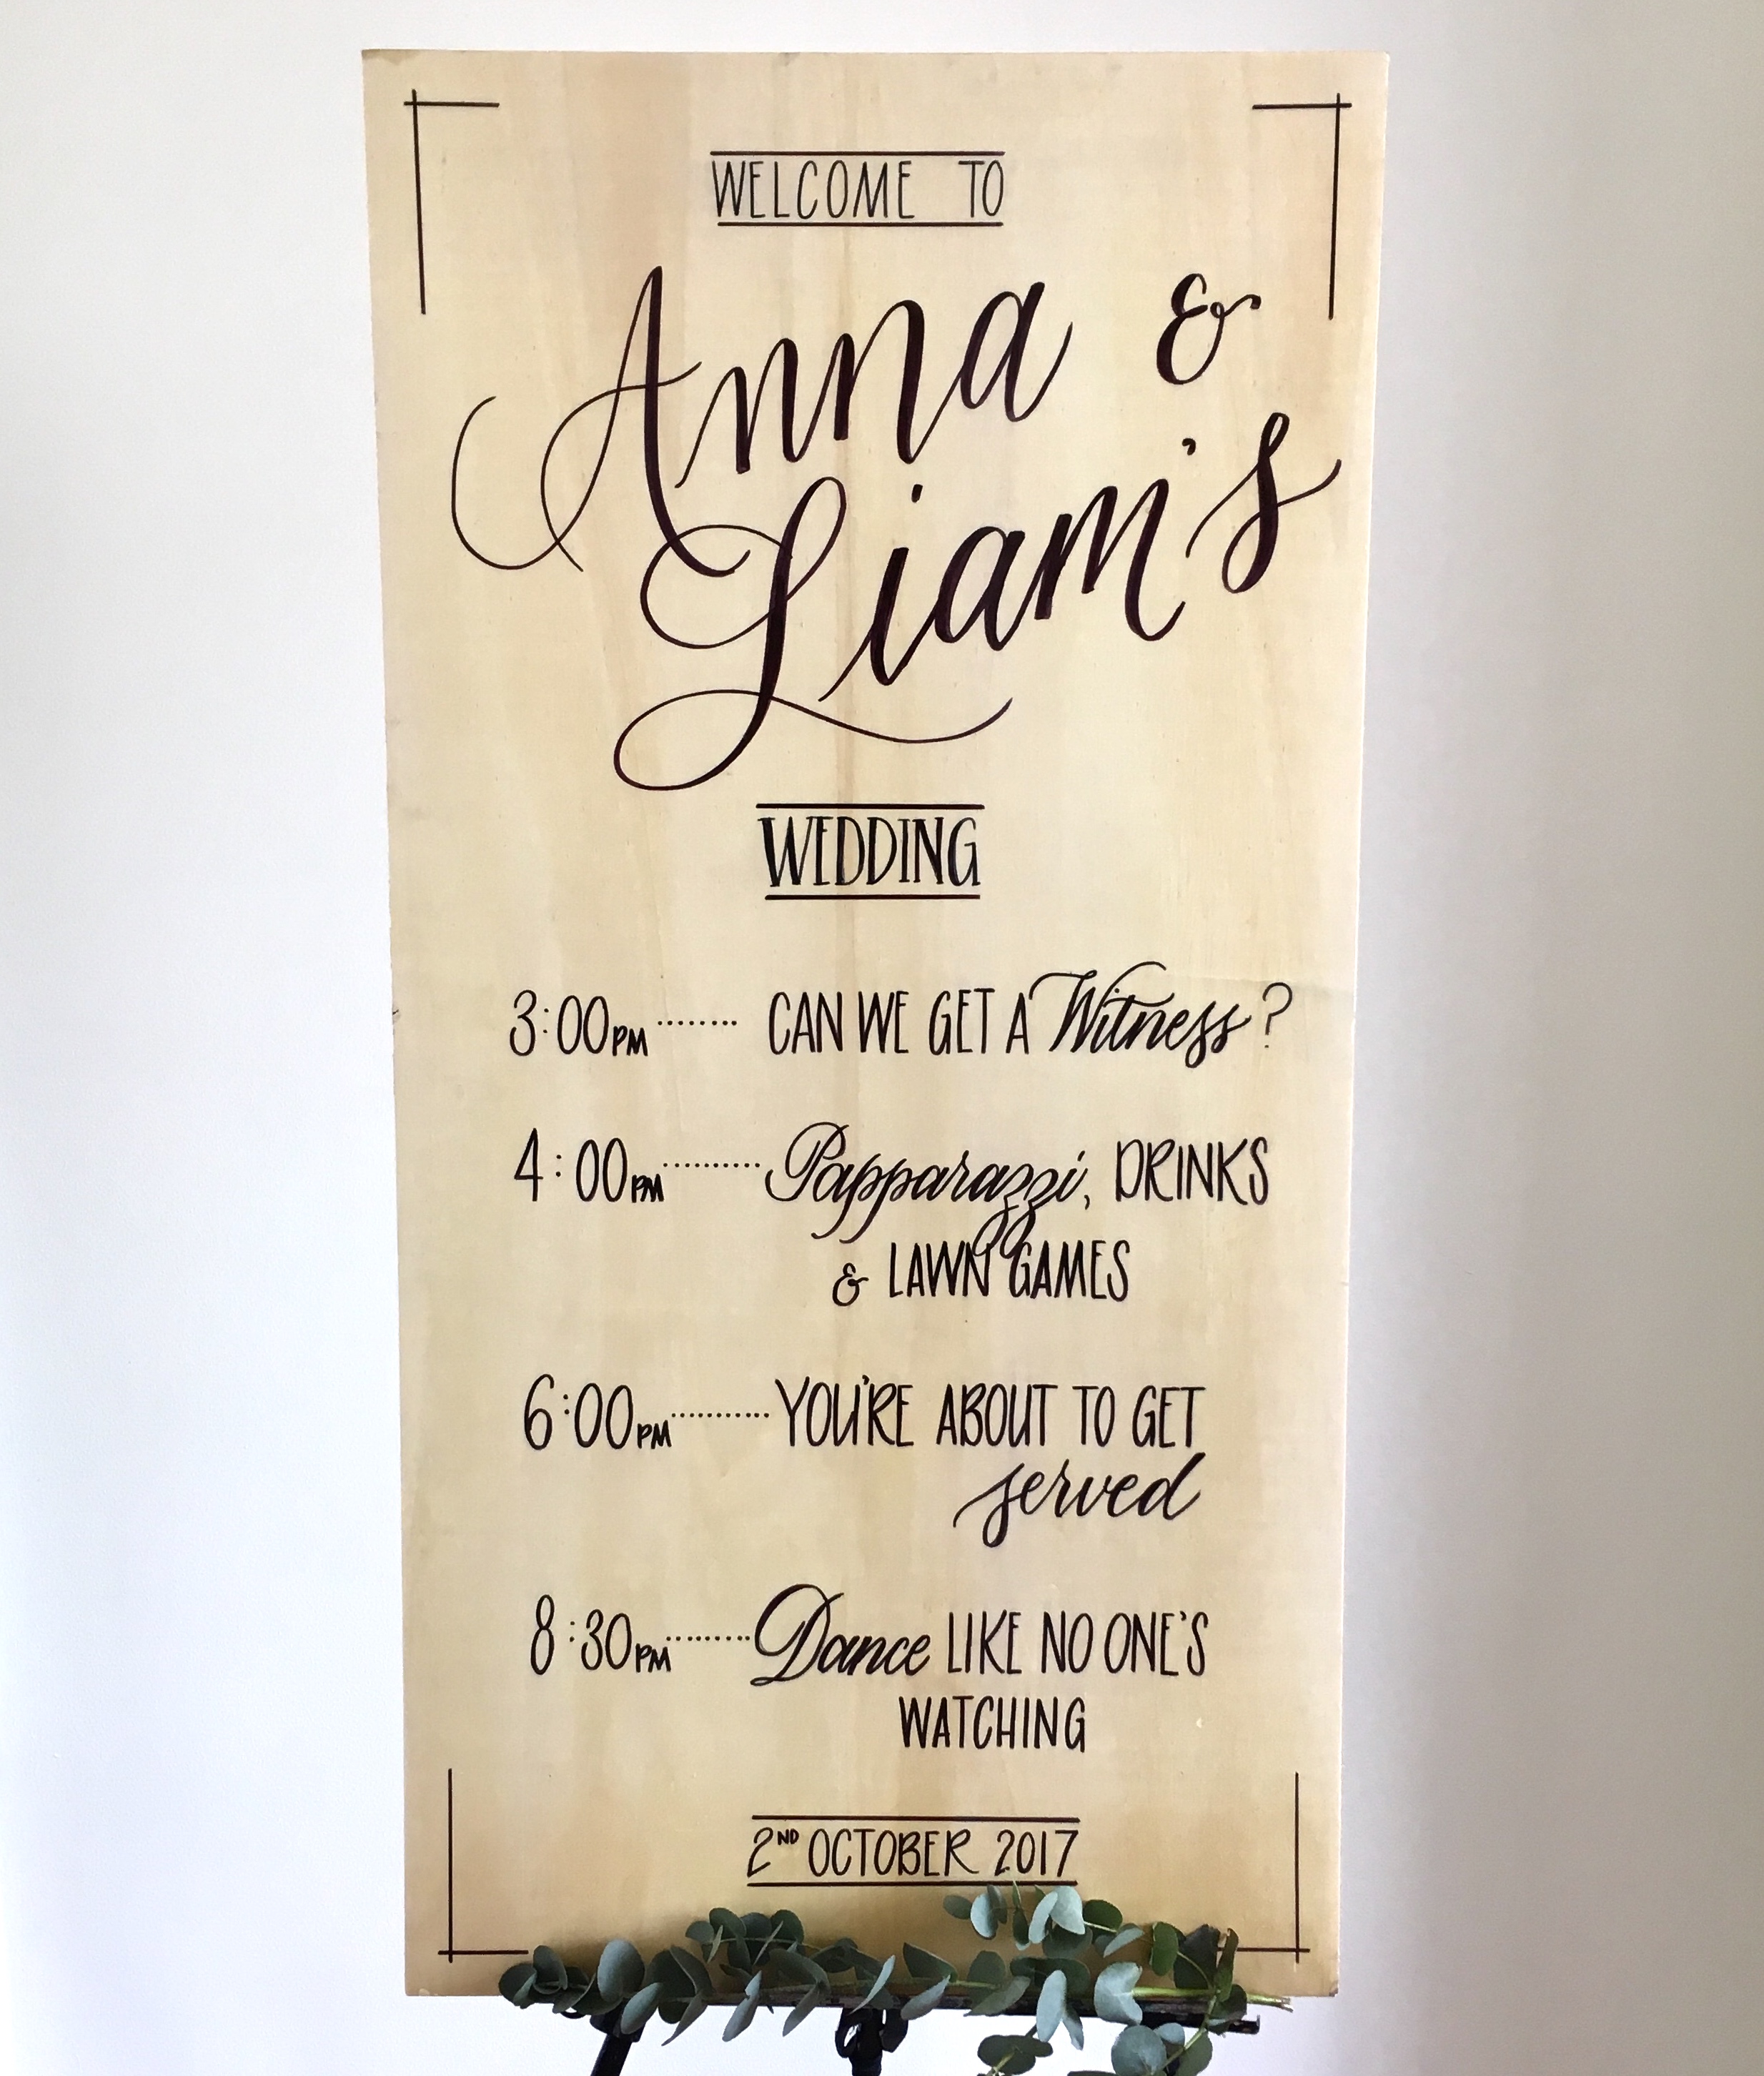 WELCOME TO
Anna &
Liam's
WEDDING
3:00PM ........ CAN WE GET A Witness?
4:00PM .......... Papparazzi, DRINKS
& LAWN GAMES
6:00PM .......... YOU'RE ABOUT TO GET
served
8:30PM ......... Dance LIKE NO ONE'S
WATCHING
2ND OCTOBER 2017